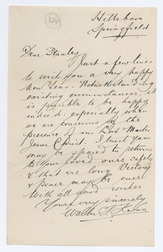 Hillsboro
Springfield
Dear Stanley
Just a few lines
to wish you a very happy
New Year. Notwithstanding
existing circumstances it
is possible to be happy
indeed, especially when
we are conscious of the
presence of our Lord Master
Jesus Christ. I trust you
may be spared to return
to your loved ones safely
& that we long Victory
& peace may be ours
With all good wishes
Yours very sincerely
Walter H.